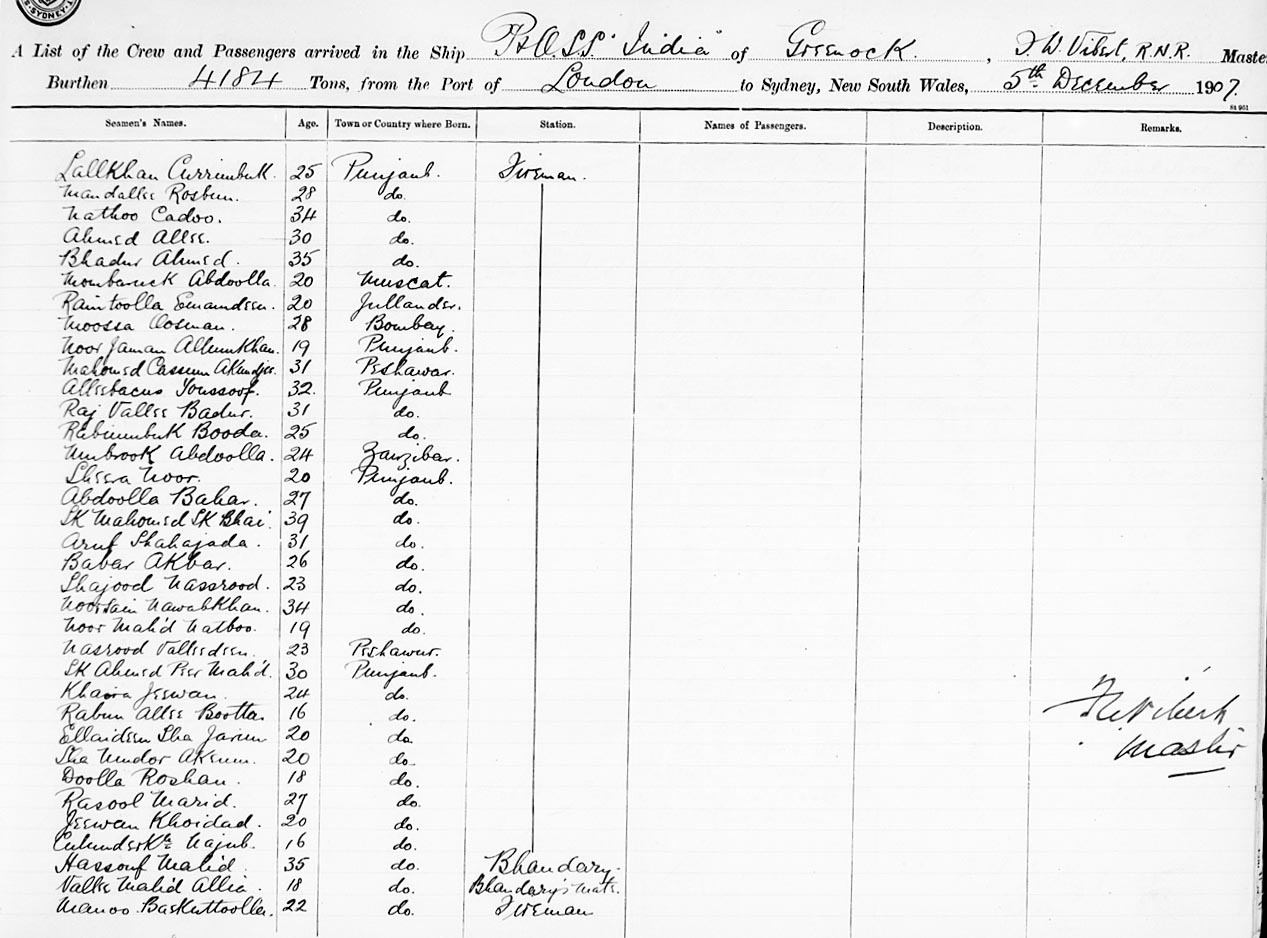 SYDNEY
A List of the Crew and Passengers arrived in the Ship P&O. S.S. "India" of Greenock. , F. W. Vibert, R.N.R. Master
Burthen 4184 Tons, from the Port of London to Sydney, New South Wales, 5th December 1907.
Seamen's Names. Age. Town or Country where Born. Station. Names of Passengers. Description. Remarks.
Lallkhan Currimbuk. 25 Punjaub. Fireman.
Mandallee Rosbun. 28 do.
Nathoo Cadoo. 34 do.
Ahmed Allee. 30 do.
Bhadur Ahmed. 35 do.
Mombaruck Abdoolla. 20 Muscat.
Raimtoolla Emamdeen. 20 Jullander.
Moossa Oosman. 28 Bombay.
Noor Jaman Allumkhan. 19 Punjaub.
Mahomed Cassum 31 Peshawar.
Alleebacus Youssoof. 32. Punjaub
Raj Vallee Badur. 31 do.
Rabiumbuk Booda. 25 do.
Umbrook Abdoolla. 24 Zanzibar.
Sheera Noor. 20 Punjaub.
Abdoolla Bahar. 27 do.
SK Mahomed SK Bhai. 39 do.
Aruf Shahajada. 31 do.
Babar Akbar. 26 do.
Shajood Nassrood. 23 do.
Noorsain Nawabkhan. 34 do.
Noor Mah'd Nathoo. 19 do.
Nasrood Valleedeen. 23 Peshawur.
SK Ahmed Peer Mah'd. 30 Punjaub.
Khaira Jeewan. 24 do.
Rabun Allee Bootta. 16 do.
Ellaideen Sha Jarum 20 do.
Sha Undor Akrum. 20 do.
Doolla Roshan. 18 do.
Rasool Marid. 27 do.
Jeewan Khoidad. 20 do.
Najub. 16 do.
Hassouf Mah'd. 35 do. Bhandary.
Vallee Mah'd Allia. 18 do. Bhandary's Mate.
Manoo Baskuttoolla. 22 do. Fireman
F W Vibert
Master